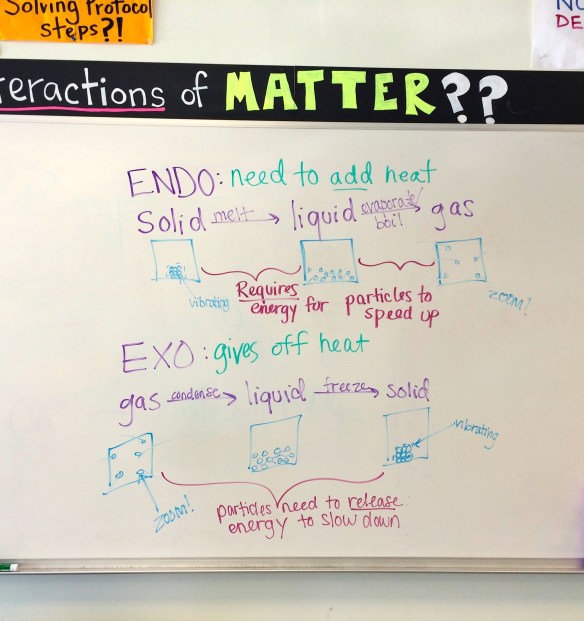 Solving Protocol
steps?!
NO
DE
teractions of MATTER??
ENDO: need to add heat
Solid melt → liquid evaporate/ boil → gas
vibrating
Requires energy for particles to speed up
zoom!
EXO: gives off heat
gas condense → liquid freeze → solid
vibrating
zoom!
particles need to release
energy to slow down